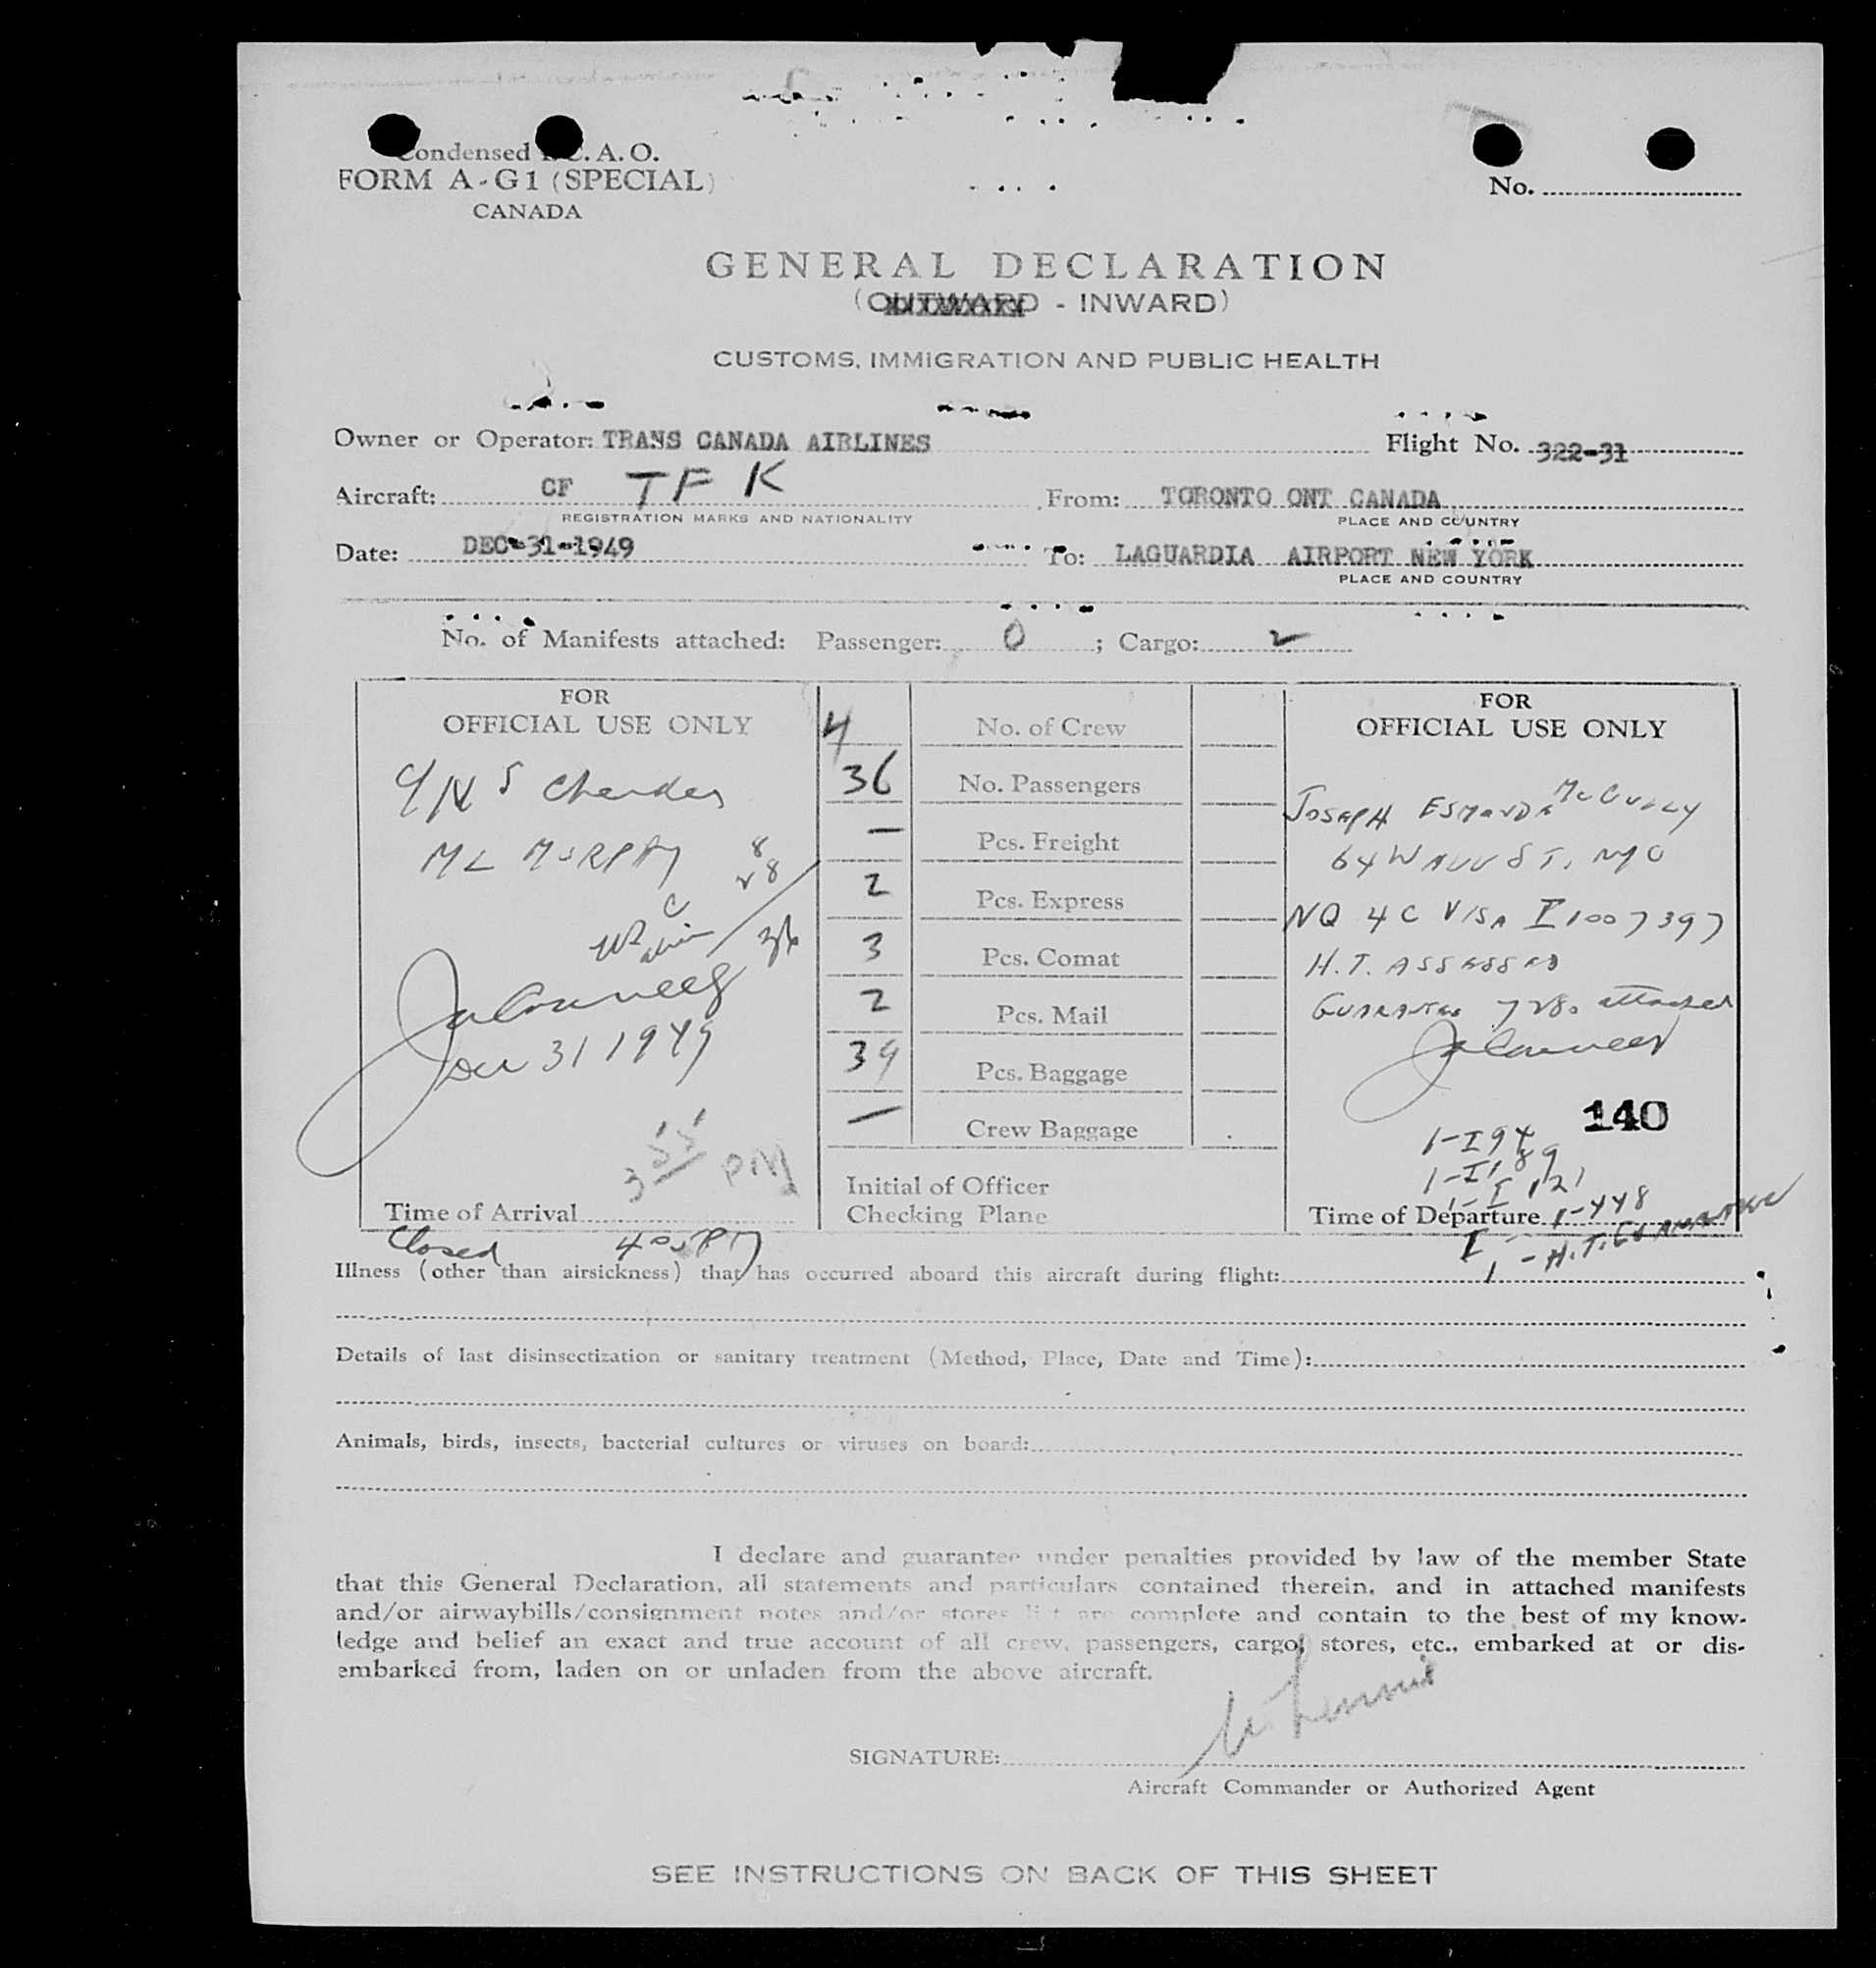 Condensed I.C.A.O.
FORM A-G1 (SPECIAL)
CANADA
No.
GENERAL DECLARATION
(OUTWARD - INWARD)
CUSTOMS, IMMIGRATION AND PUBLIC HEALTH
Owner or Operator: TRANS CANADA AIRLINES Flight No. 322-31
Aircraft: CF TFK From: TORONTO ONT CANADA
REGISTRATION MARKS AND NATIONALITY PLACE AND COUNTRY
Date: DEC-31-1949 To: LAGUARDIA AIRPORT NEW YORK
PLACE AND COUNTRY
No. of Manifests attached: Passenger: 0 ; Cargo: 2
FOR
OFFICIAL USE ONLY
ML MURPHY 8
28
36
Dec 31 1949
3 55 PM
Time of Arrival
Closed 4 05 PM
4 No. of Crew
36 No. Passengers
— Pcs. Freight
2 Pcs. Express
3 Pcs. Comat
2 Pcs. Mail
39 Pcs. Baggage
— Crew Baggage
Initial of Officer
Checking Plane
FOR
OFFICIAL USE ONLY
JOSEPH ESMONDE McCULLY
64 WALL ST. NYC
NQ 4C VISA I 1007397
H.T. ASSESSED
GUARANTEE 728. attached
140
1-I 94
1-I 189
1-I 121
Time of Departure 1-448
I 1 - H.T. GUARANTEE
Illness (other than airsickness) that has occurred aboard this aircraft during flight:
Details of last disinsectization or sanitary treatment (Method, Place, Date and Time):
Animals, birds, insects, bacterial cultures or viruses on board:
I declare and guarantee under penalties provided by law of the member State
that this General Declaration, all statements and particulars contained therein, and in attached manifests
and/or airwaybills/consignment notes and/or stores list are complete and contain to the best of my know-
ledge and belief an exact and true account of all crew, passengers, cargo, stores, etc., embarked at or dis-
embarked from, laden on or unladen from the above aircraft.
SIGNATURE:
Aircraft Commander or Authorized Agent
SEE INSTRUCTIONS ON BACK OF THIS SHEET